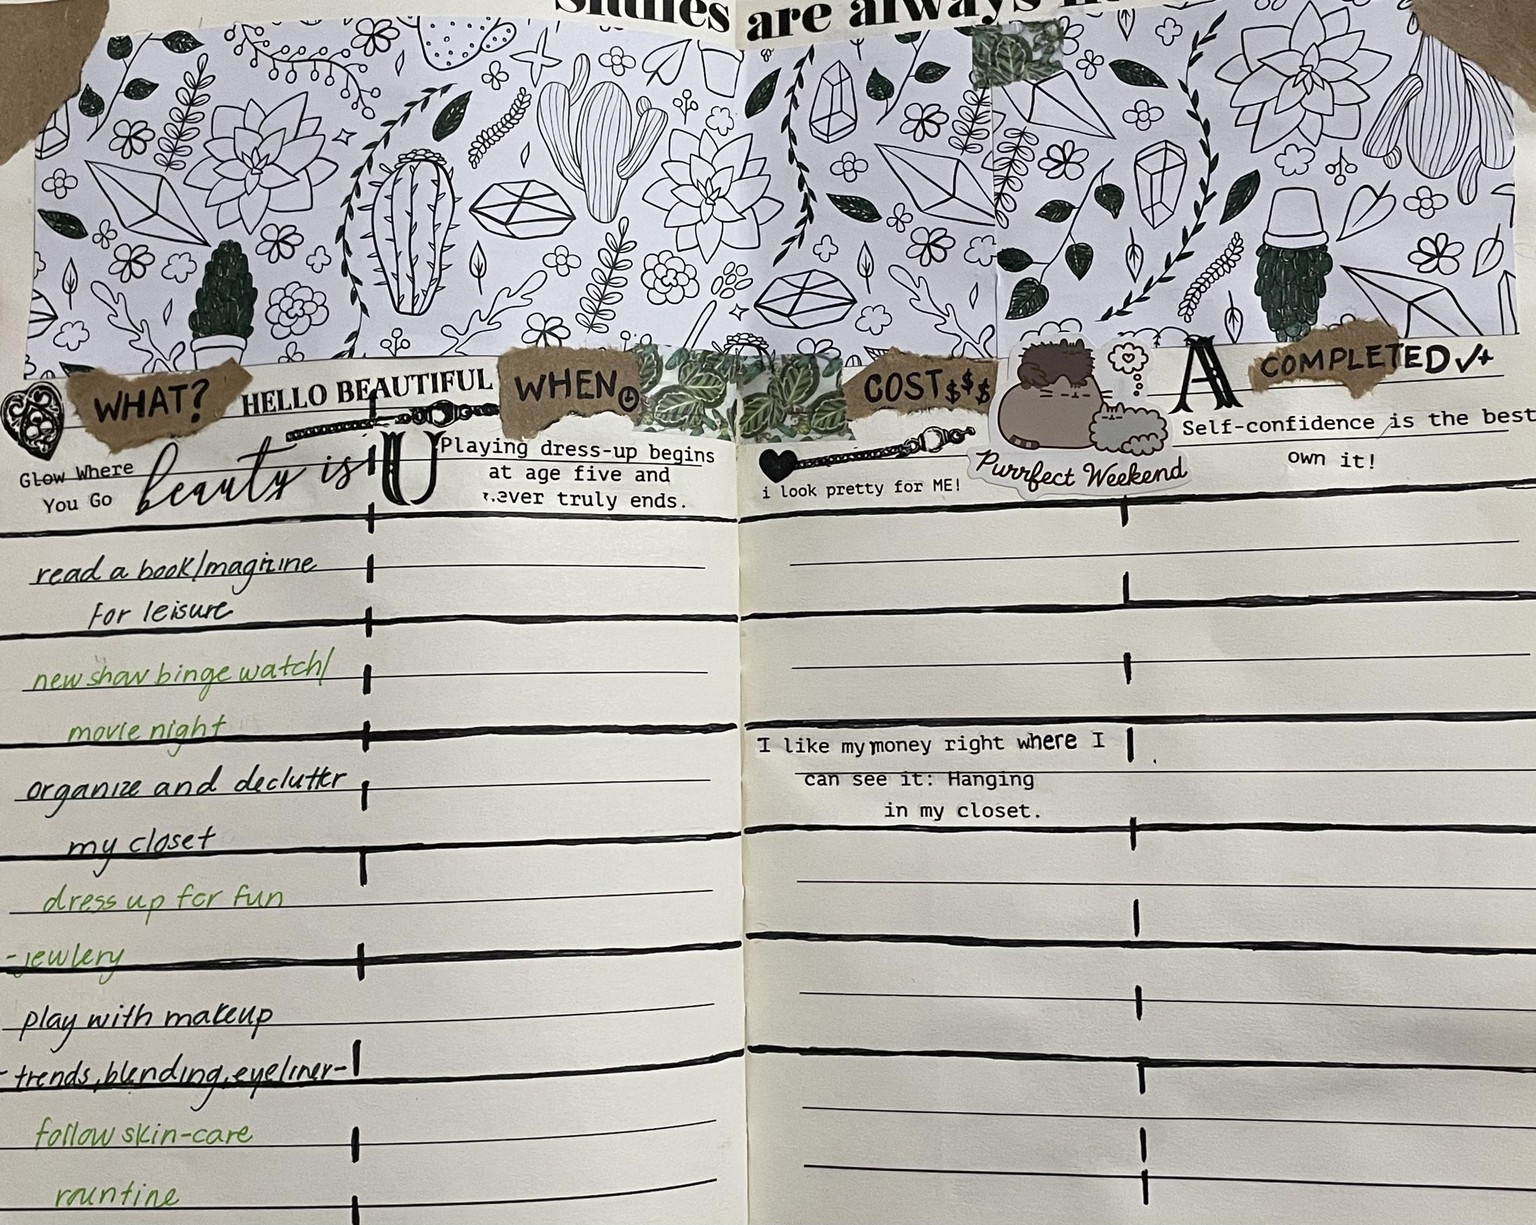 are always
WHAT?
HELLO BEAUTIFUL
WHEN
COST$$$
COMPLETED✓+
Glow Where
You Go
beauty is
U
Playing dress-up begins
at age five and
never truly ends.
i look pretty for ME!
Purrfect Weekend
A
Self-confidence is the best
own it!
read a book/magizine
for leisure
new show binge watch/
movie night
organize and declutter
my closet
I like my money right where I
can see it: Hanging
in my closet.
dress up for fun
-jewlery
play with makeup
- trends, blending, eyeliner-
follow skin-care
rountine